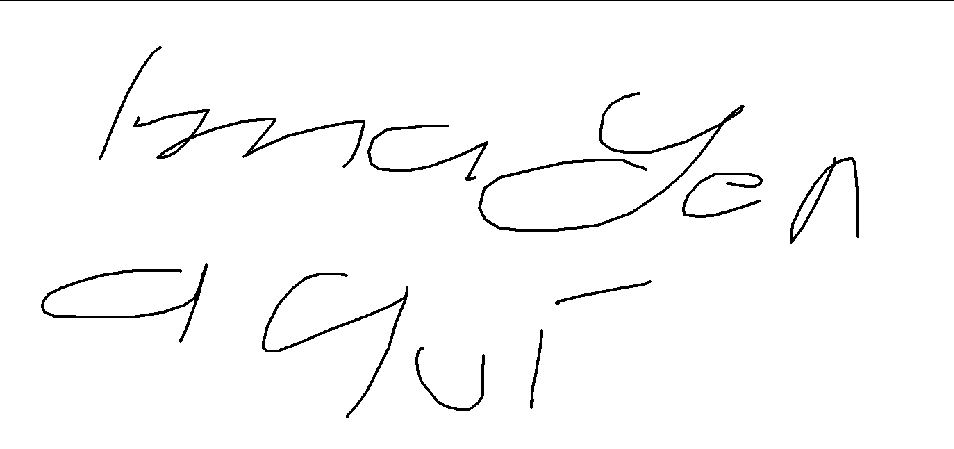 Imagen
aquí